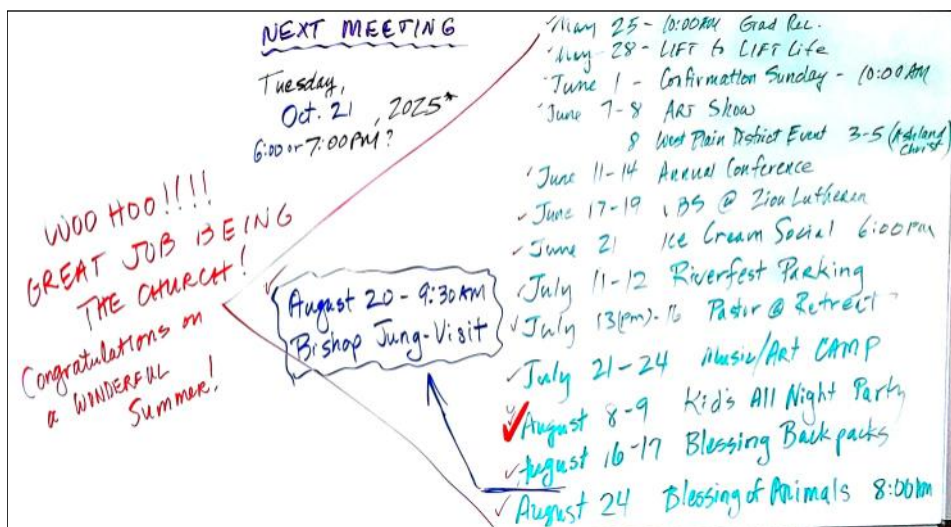 NEXT MEETING
Tuesday,
Oct. 21, 2025*
6:00 or 7:00PM?
WOO HOO!!!!
GREAT JOB BEING
THE CHURCH!
Congratulations on
a WONDERFUL
Summer!
August 20 - 9:30AM
Bishop Jung-Visit
May 25 - 10:00AM Grad Rec.
May 28 - LIFT to LIFT Life
June 1 - Confirmation Sunday - 10:00AM
June 7-8 ART Show
8 West Plain District Event 3-5 (Ashland Christ)
June 11-14 Annual Conference
June 17-19 VBS @ Zion Lutheran
June 21 Ice Cream Social 6:00pm
July 11-12 Riverfest Parking
July 13(pm)-16 Pastor @ Retreat
July 21-24 Music/Art CAMP
August 8-9 Kid's All Night Party
August 16-17 Blessing Backpacks
August 24 Blessing of Animals 8:00am